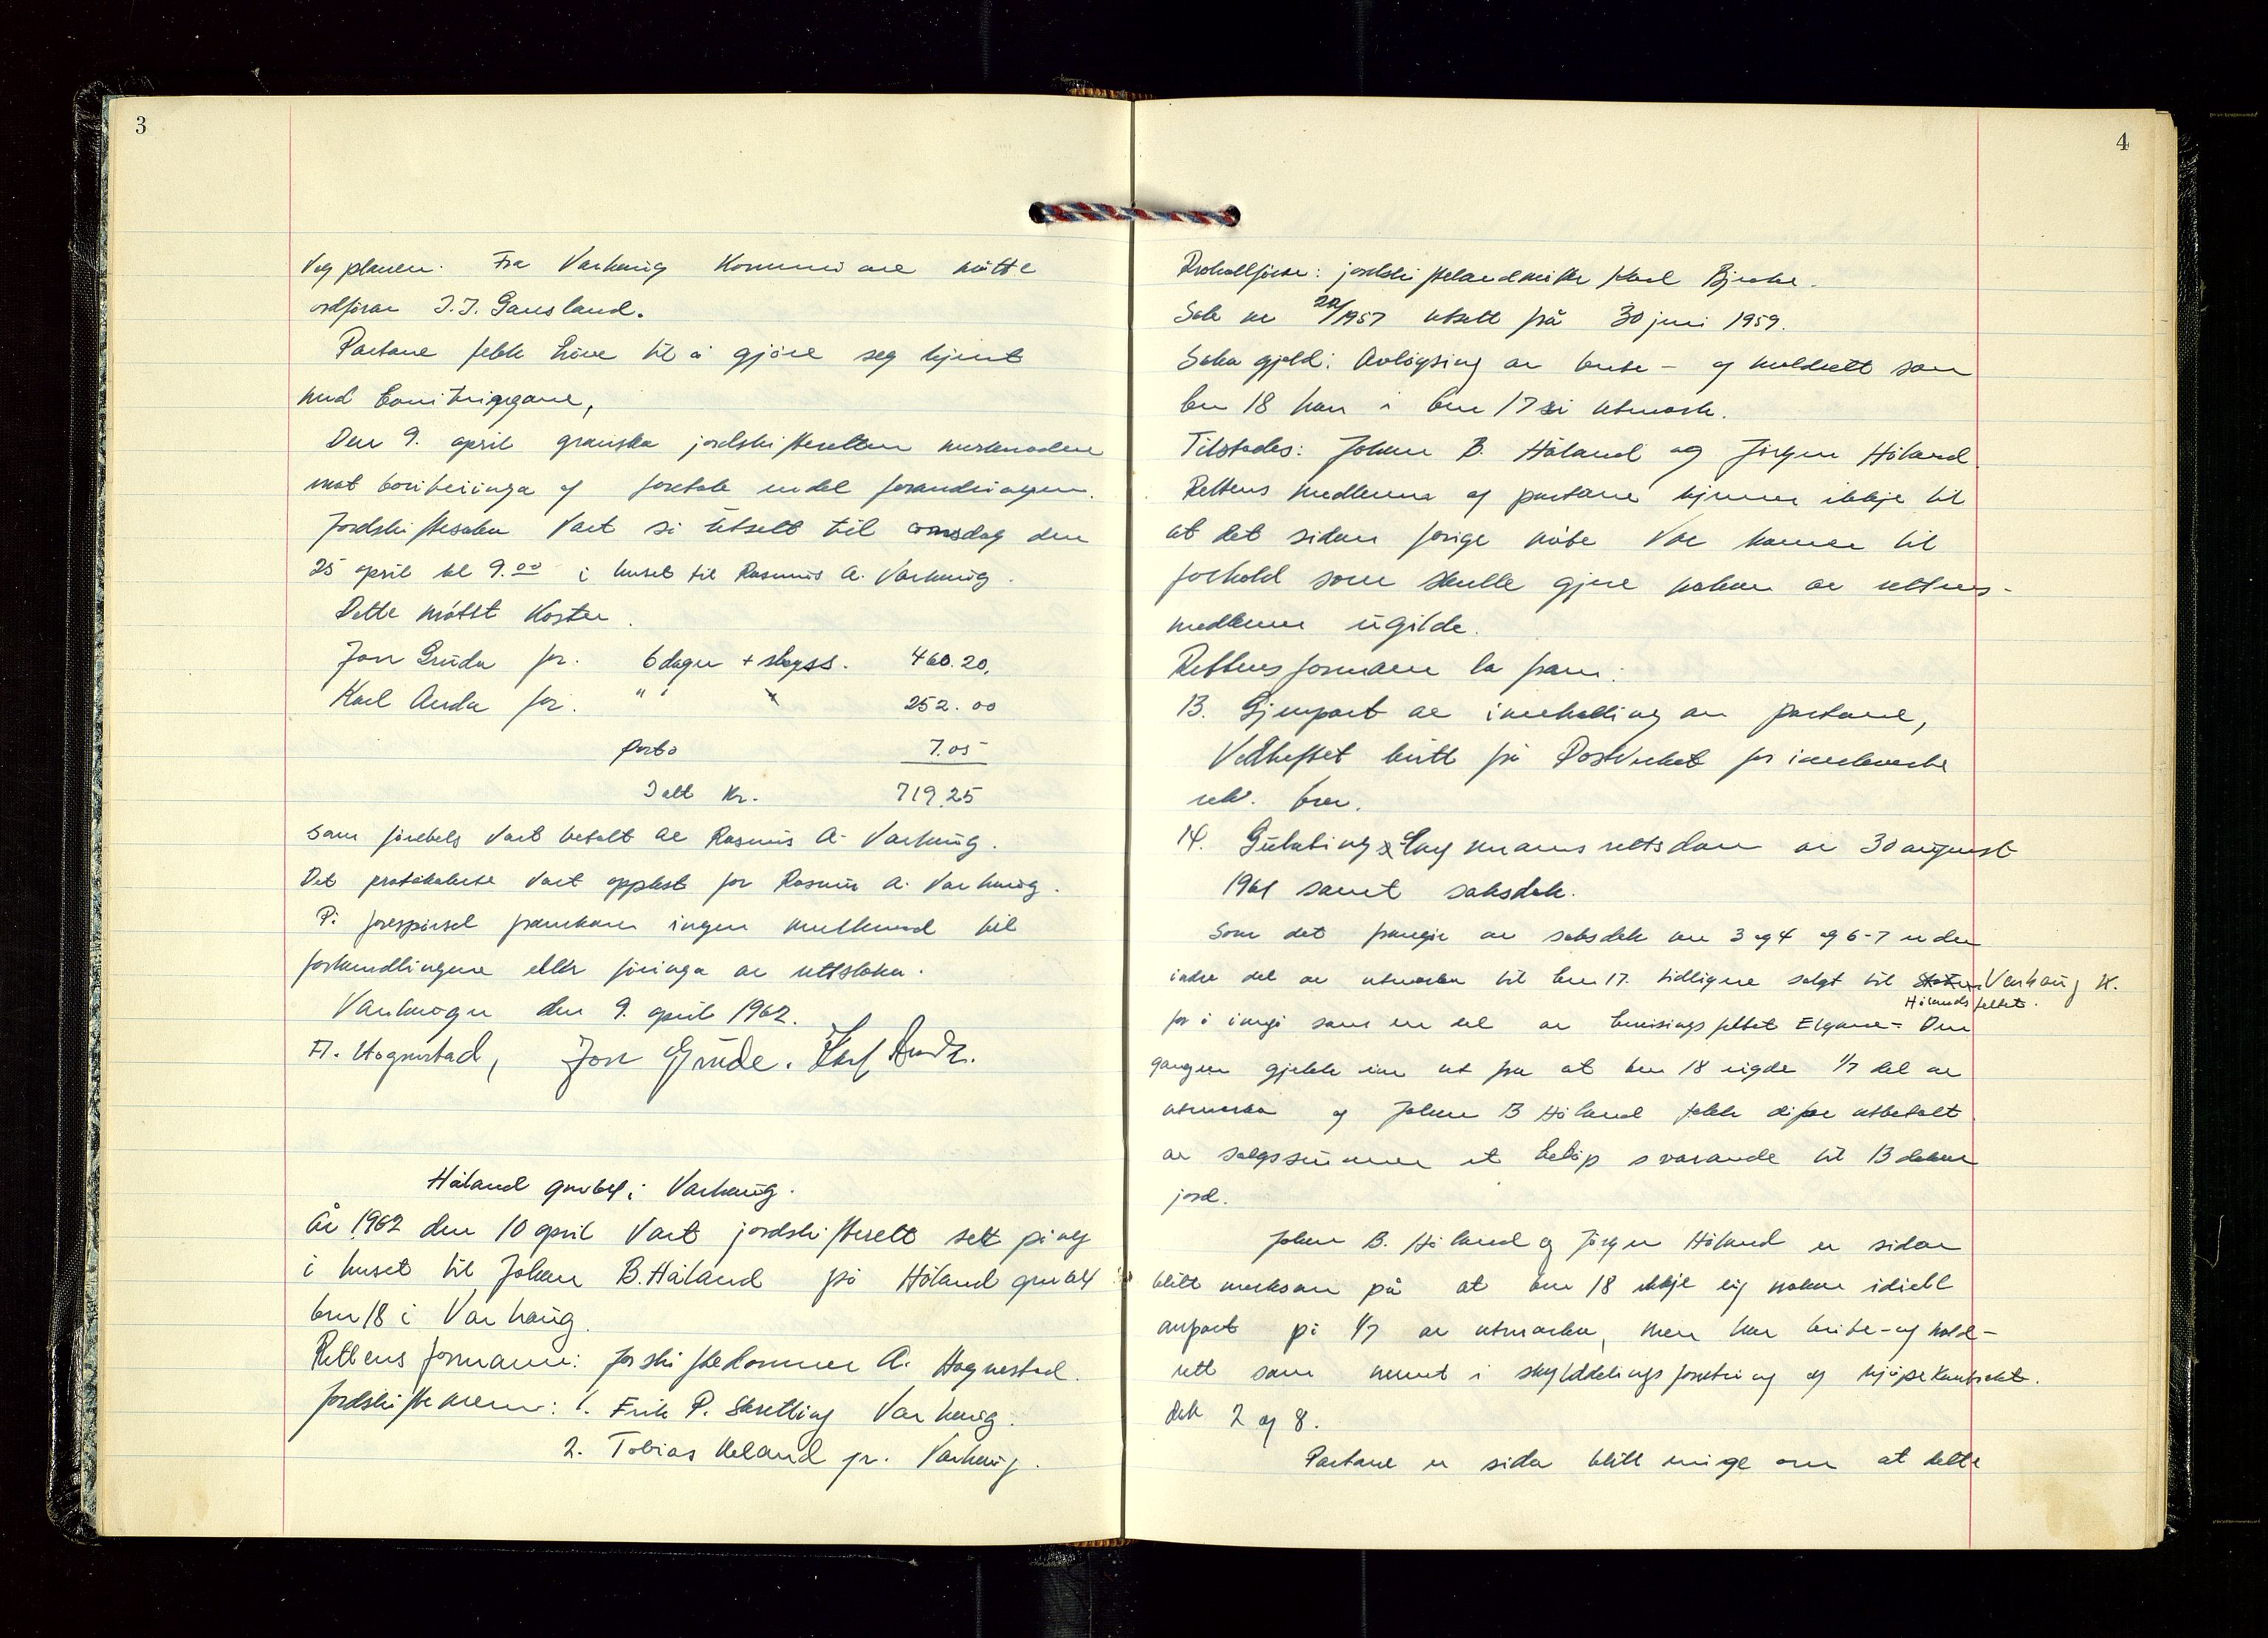 3
Vegplanen. Fra Varhaug Kommune møtte
ordførar I.I. Gausland.
Partane fekk høve til å gjøre seg kjent
med boniteringane,
Den 9. april granska jordskifteretten merknadene
mot boniteringa og foretok endel forandringer.
Jordskiftesaka vart så utsett til onsdag den
25 april kl 9.00 i huset til Rasmus A. Varhaug.
Dette møtet koster.
Jon Grude for. 6 dager + skyss. 460.20.
Karl Anda for. " " 252.00
Porto 7.05
I alt kr. 719.25
som førebels vart betalt av Rasmus A. Varhaug.
Det protokolerte vart opplest for Rasmus A. Varhaug.
På forespørsel framkom ingen merknad til
forhandlingene eller føringa av rettsboka.
Varhaug den 9. april 1962.
A. Hognestad, Jon Grude. Karl Anda.
Håland gnr 64 i Varhaug.
År 1962 den 10 april vart jordskifterett sett på ny
i huset til Johan B. Håland på Håland gnr 64
bnr 18 i Varhaug.
Rettens formann: Jorskiftedommer A. Hognestad.
Jordskiftemenn: 1. Erik P. Skretting Varhaug.
2. Tobias Ueland pr. Varhaug.
4
Protokollførar: jordskiftelandmåler Karl Bjerke.
Sak nr 20/1957 utsett frå 30 juni 1959.
Saka gjeld: Avløysing av beite- og moldrett som
bnr 18 har i bnr 17 si utmark.
Tilstades: Johan B. Håland og Jørgen Håland.
Rettens medlemmer og partane kjenner ikkje til
at det sidan forige møte var komen til
forhold som skulle gjere nokon av rettens-
medlemmer ugilde.
Rettens formann la fram:
13. Gjenpart av innkalling av partane,
Vedheftet kvitt frå Postverket for innleverte
rek. brev.
14. Gulating Lagmannsrettsdom av 30 august
1961 samt saksdok.
Som det framgår av saksdok nr 3 og 4 og 6-7 er den
indre del av utmarka til bnr 17. tidligere solgt til Staten Varhaug K.
Hålandsfeltet.
for å inngå som en del av bureisingsfeltet Elgane- Den
gangen gjekk inn ut fra at bnr 18 eigde 1/7 del av
utmarka og Johan B Håland fekk difor utbetalt
av salgssummen et beløp svarande til 13 dekar
jord.
Johan B. Håland og Jørgen Håland er sidan
blitt merksam på at bnr 18 ikkje eig nokon idiell
anpart på 1/7 av utmarka, men har beite- og mold-
rett som nemnt i skylddelingsforretning og kjøpekontrakt.
dok 2 og 8.
Partane er sidan blitt einige om at dette